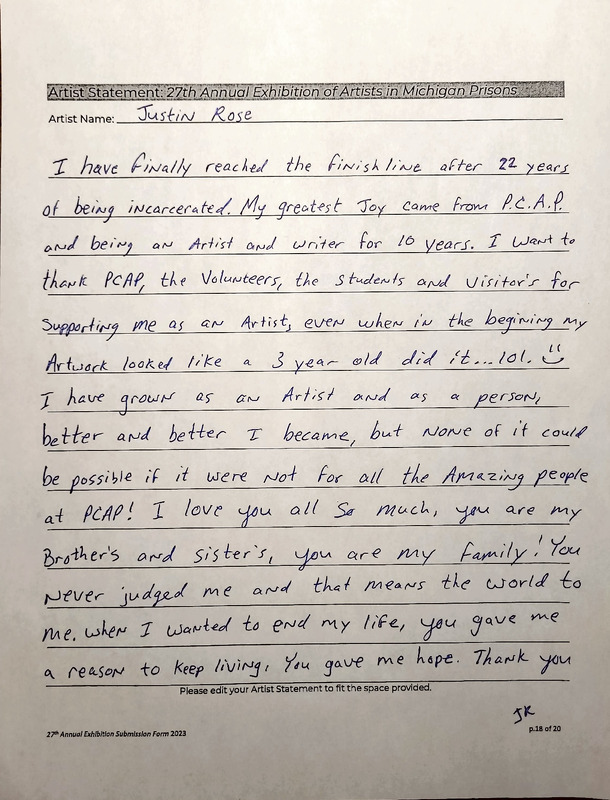 Artist Statement: 27th Annual Exhibition of Artists in Michigan Prisons
Artist Name: Justin Rose
I have finally reached the finish line after 22 years
of being incarcerated. My greatest Joy came from P.C.A.P.
and being an Artist and writer for 10 years. I want to
thank PCAP, the Volunteers, the students and Visitor's for
Supporting me as an Artist, even when in the begining my
Artwork looked like a 3 year old did it... lol. ☺
I have grown as an Artist and as a person,
better and better I became, but none of it could
be possible if it were not for all the Amazing people
at PCAP! I love you all So much, you are my
Brother's and sister's, you are my family! You
Never judged me and that means the world to
me. when I wanted to end my life, you gave me
a reason to keep living. You gave me hope. Thank you
Please edit your Artist Statement to fit the space provided.
JR
27th Annual Exhibition Submission Form 2023 p.18 of 20